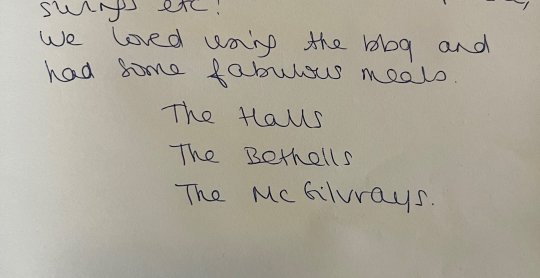 swings etc!
We loved using the bbq and
had some fabulous meals.
The Halls
The Bethells
The McGilvrays.